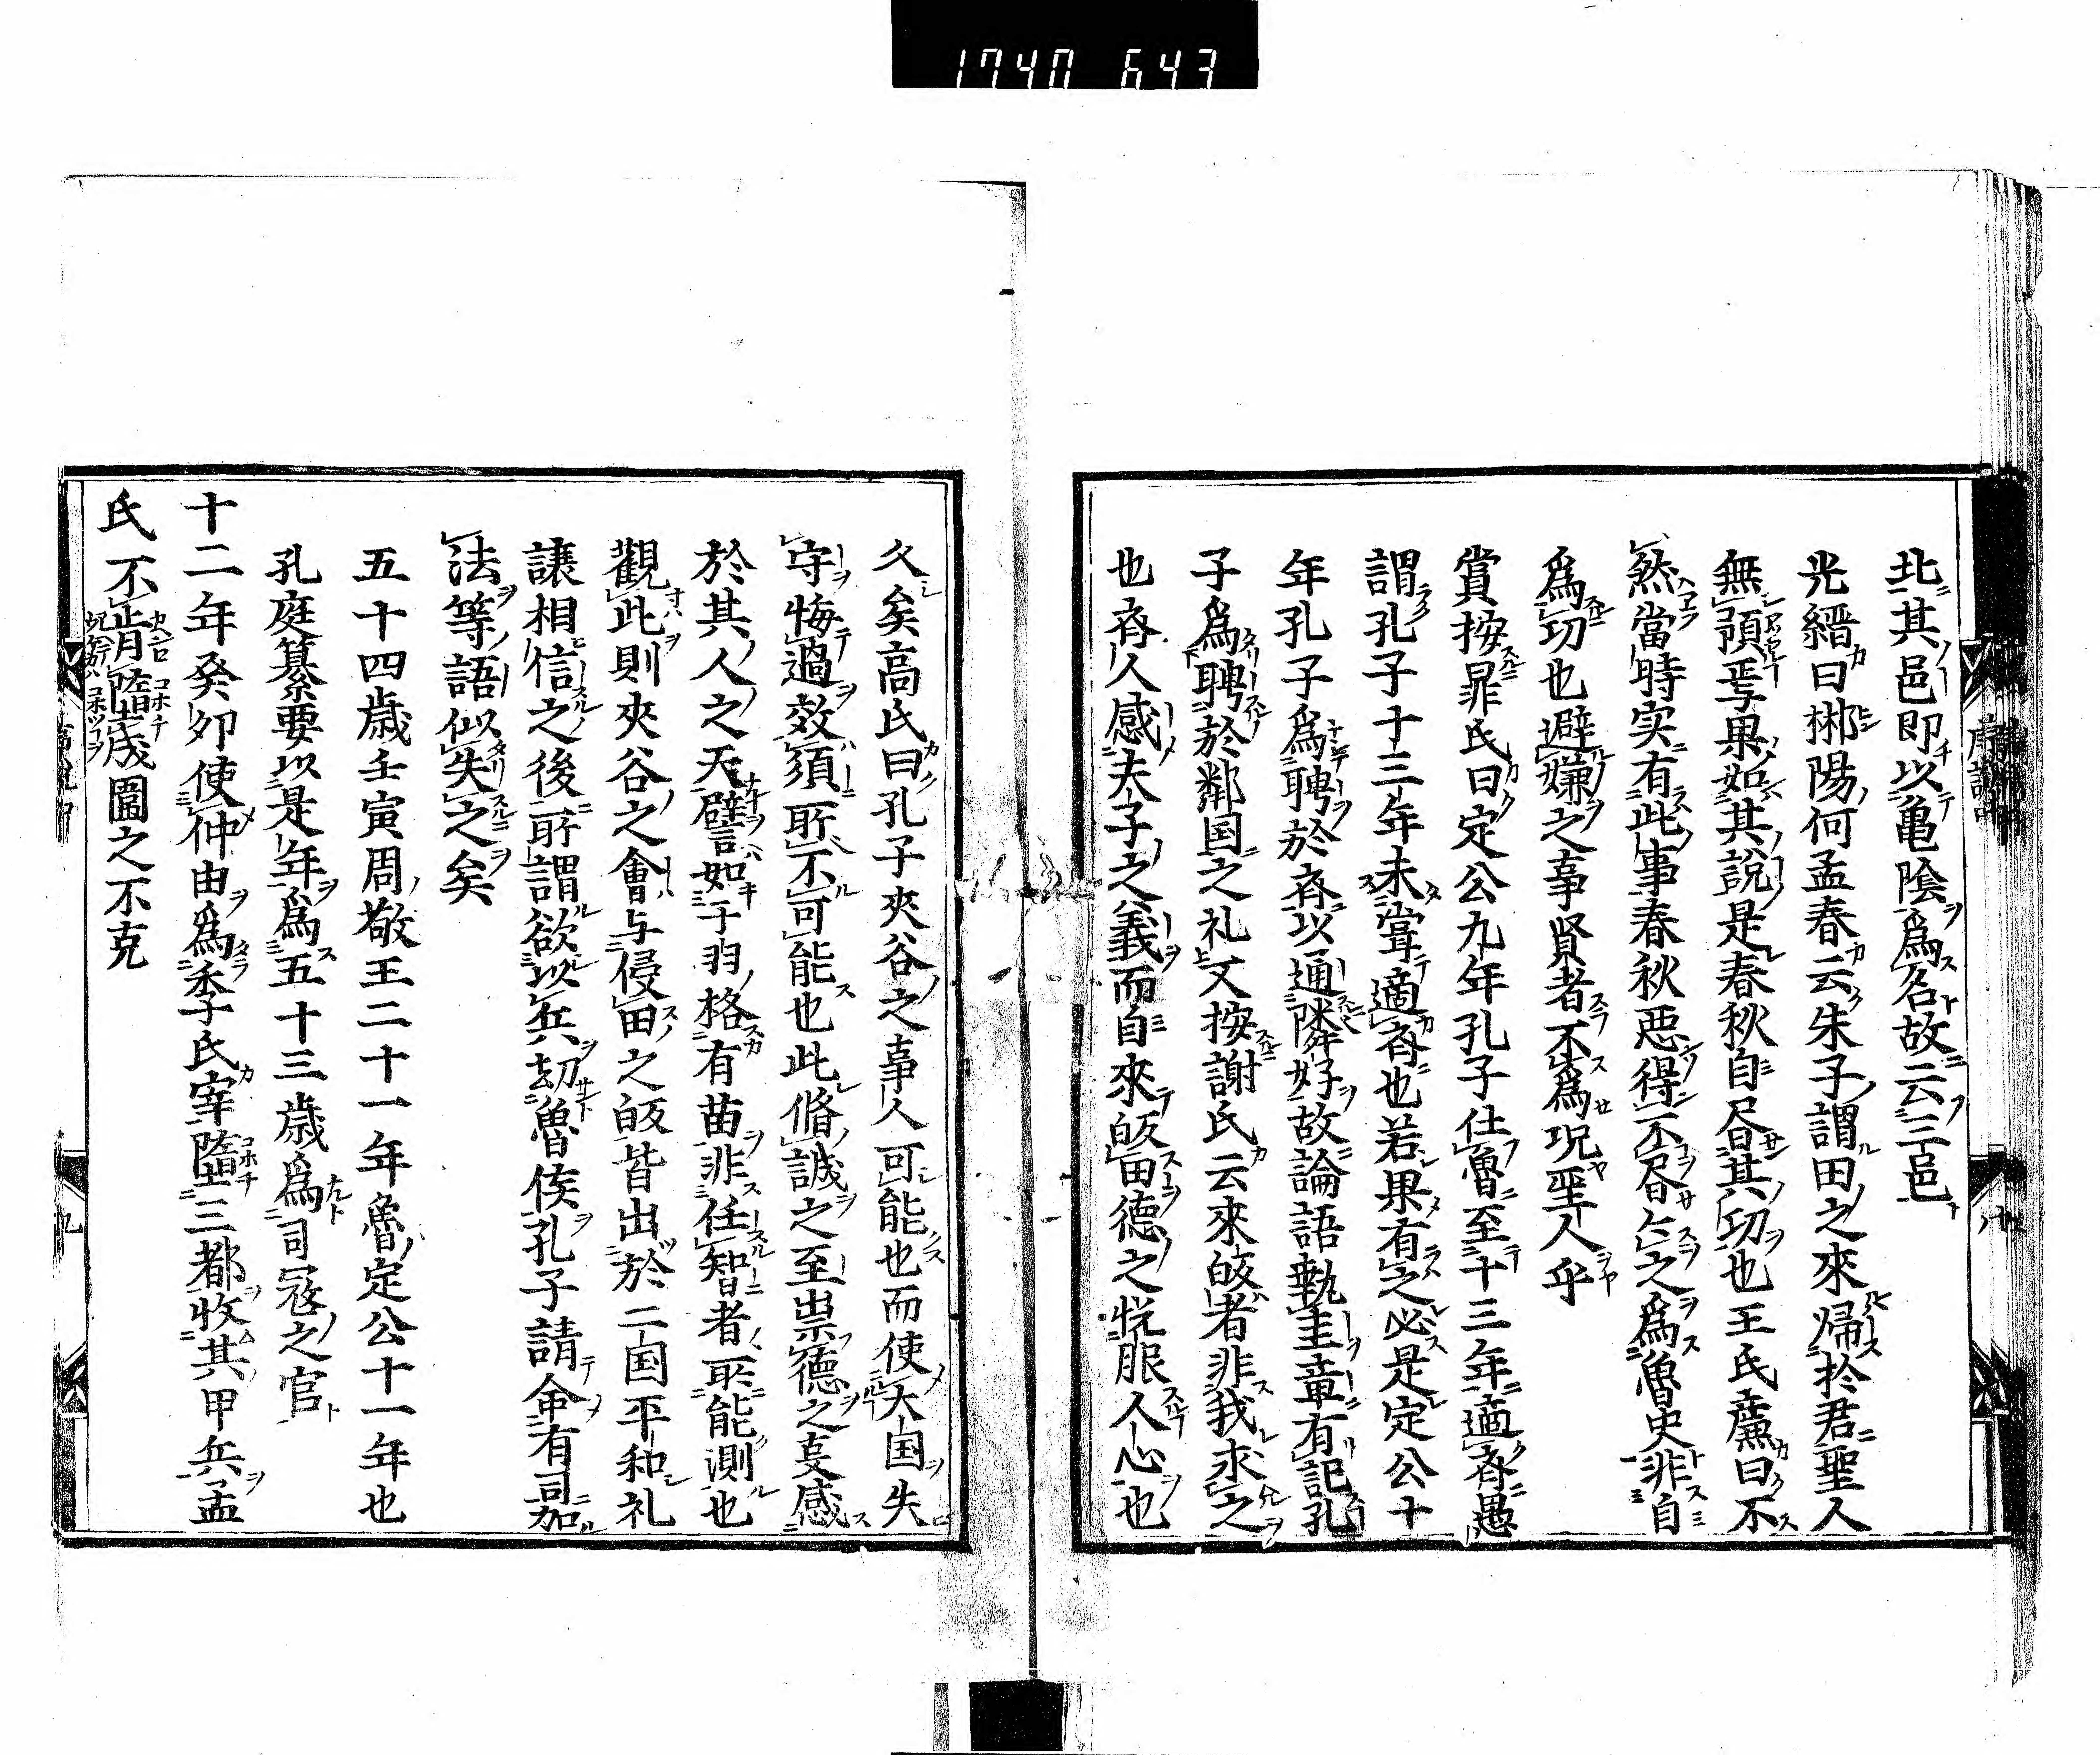 1740 643
北其邑即以亀陰爲名故云三邑
光縉曰郴陽何孟春云朱子謂田之來帰於君聖人
無預焉果如其說是春秋自昝其功也王氏廉曰不
然當時实有此事春秋悪得不昝亡之爲魯史非自
爲功也避嫌之事賢者不爲况聖人乎
賞按晁氏曰定公九年孔子仕魯至十三年適斉愚
謂孔子十三年未甞適斉也若果有之必是定公十
年孔子爲聘於斉以通隣好故論語執圭章有記孔
子爲聘於鄰国之礼文按謝氏云來皈者非我求之
也斉人感夫子之義而自來皈田德之恱服人心也
久矣高氏曰孔子夾谷之事人可能也而使大国失
守悔過效須所不可能也此脩誠之至崇德之㕝感
於其人之天譬如于羽格有苗非任智者所能測也
觀此則夾谷之會与侵田之皈皆出於二国平和礼
讓相信之後所謂欲以兵劫魯侯孔子請命有司加
法等語似失之矣
五十四歳壬寅周敬王二十一年魯定公十一年也
孔庭纂要以是年爲五十三歳爲司冦之官
十二年癸夘使仲由爲季氏宰隳三都收其甲兵孟
氏不肯隳成圍之不克